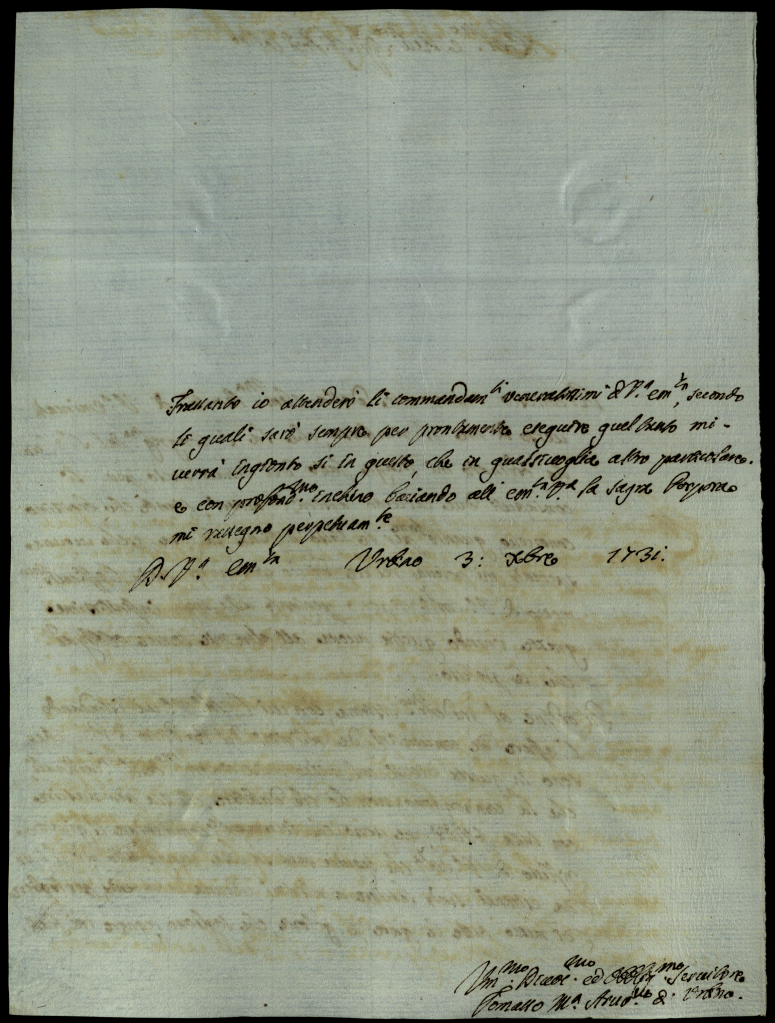 Frattanto io attenderò li commandam.ti veneratissimi di V.a em.za, secondo
li quali sarò sempre per prontamente eseguire quel tanto mi
verrà ingionto si in questo, che in qualsivoglia altro particolare.
e con profond.mo inchino baciando all em.za V.a la sagra Porpora
mi rassegno perpetuam.te
D. V.a em.za Urbino 3: Xbre 1731.
Um.mo Devot.mo ed Obblig.mo Servitore
Tomasso M.a Arciv.vo d. Urbino.